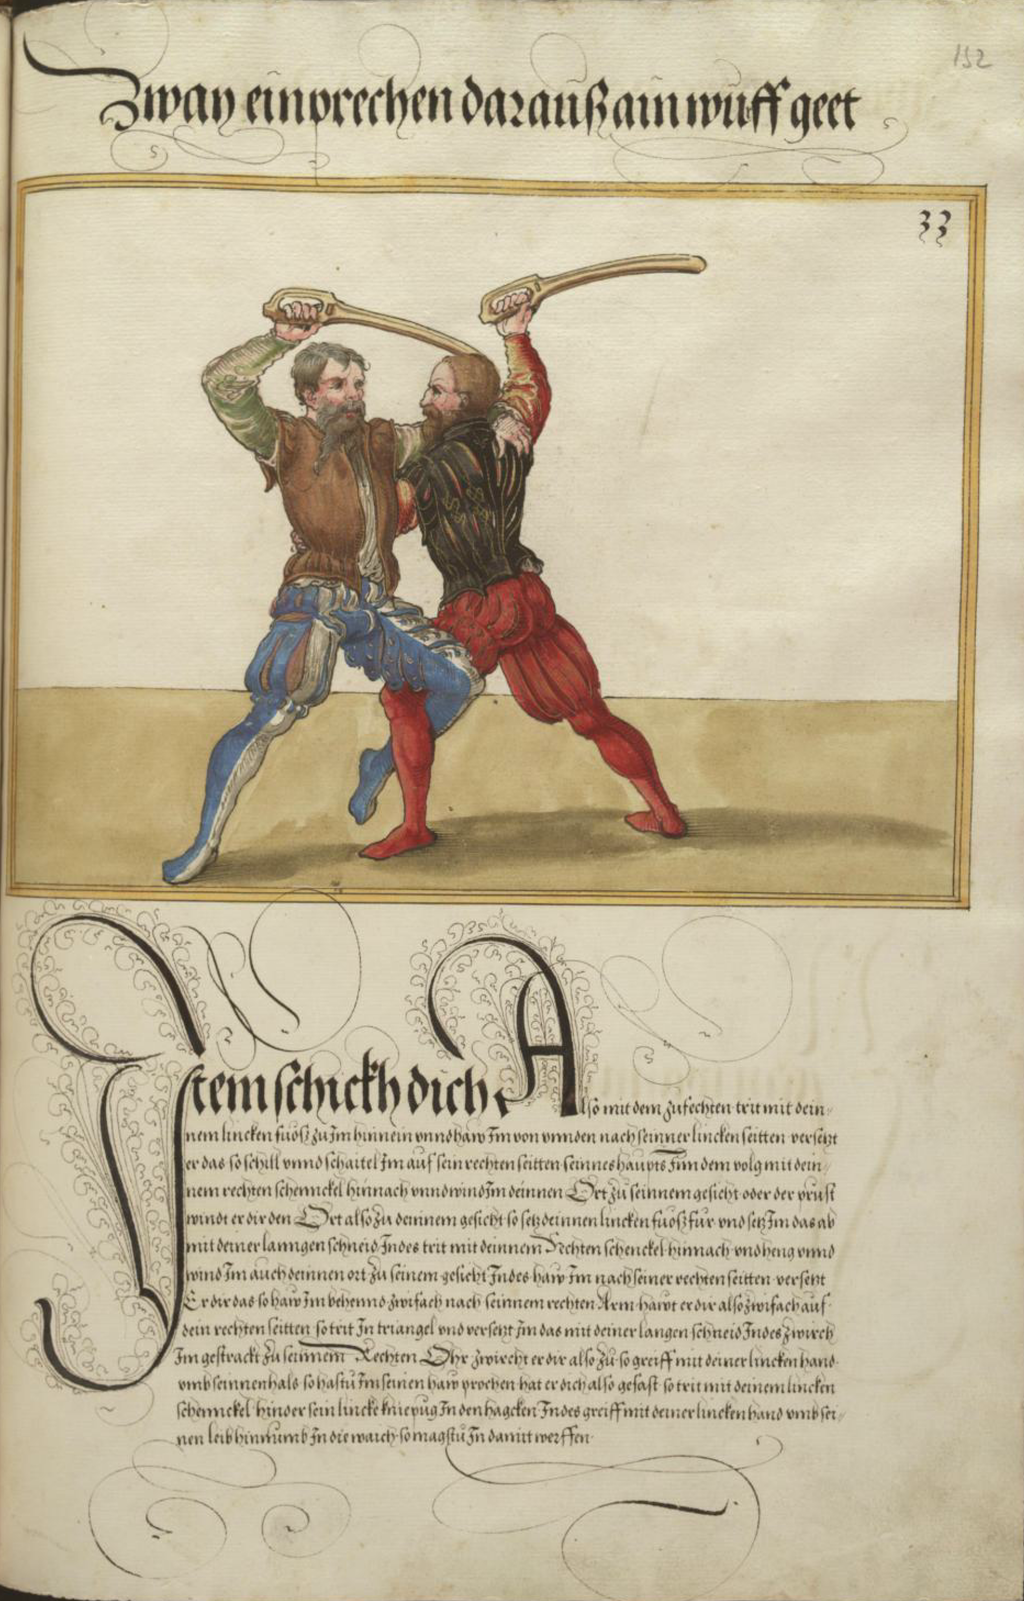 152
Zway einprechen darauß ain wurff geet
33
Item schickh dich Also mit dem zufechten trit mit dein-
nem lincken fuosz zu Im hinnein vnnd haw Im von vnnden nach seinner lincken seitten versetzt
er das so schill vnnd schaitel Im auf sein rechten seitten seinnes haupts Inn dem volg mit dein-
nem rechten schennckel hinnach vnnd wind Im deinnen Ort zu seinnem gesicht oder der prust
windt er dir den Ort also zu deninem gesicht so setz deinnen lincken fuosz fur vnd setz Im das ab
mit deiner lanngen schneid Indes trit mit deinnem Rechten schenckel hinnach vnd heng vnnd
wind Im auch deinnen ort zu seinem gesicht Indes haw Im nach seiner rechten seitten versetzt
Er dir das so haw Im behennd zwifach nach seinnem rechten Arm hawt er dir also zwifach auf
dein rechten seitten so trit In triangel vnd versetz Im das mit deiner langen schneid Indes zwirch
Im gestrackt zu seinnem Rechten Ohr zwircht er dir also zu so greiff mit deiner lincken hand
vmb seinnen hals so hastu Im seinen haw prochen hat er dich also gefast so trit mit deinem lincken
schennckel hinder sein lincke knie pug In den hagcken Indes greiff mit deiner lincken hand vmb sei-
nen leib hinnumb In die waich so magstu In damit werffen